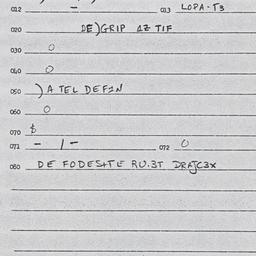 012 - 013 LOPA-T3
020 DE)GRIP 1Z TIF
030 O
040 O
050 ) A TEL DEF1N
060 O
070 $
071 - 1 - 072 O
080 DE FODES+TE RU.3T DRAJC3X